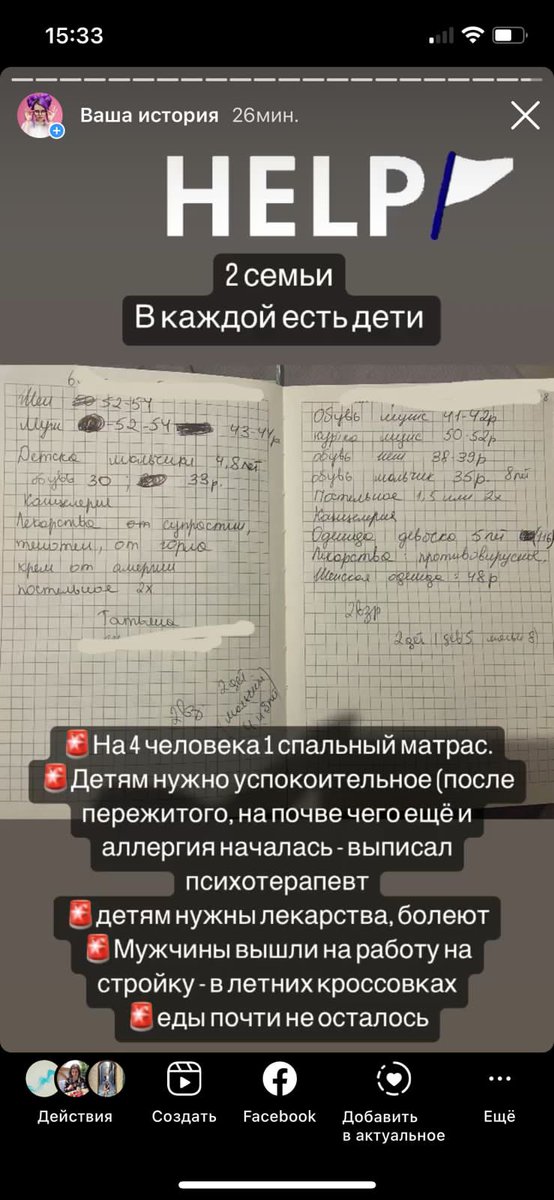 15:33
Ваша история 26мин.
HELP
2 семьи
В каждой есть дети
6.
8
Жен 52-54
Муж 52-54 43-44р
Детска мальчики 4,8 лет
обувь 30; 33р.
Канцелерия
Лекарства от супростин,
тенотен, от горла
крем от алергии
постельное 2х
Татьяна
2вз
2дет
мальчики
4 и 8лет
Обувь мужс 41-42р
куртка мужс 50-52р
обувь жен 38-39р
обувь мальчик 35р. 8лет
Постельное 1,5 или 2х
Канцелерия
Одежда девочка 5лет (116)
Лекарства: противовирусное.
Женская одежда: 48р
2взр
2дет (дев5 мальч 8)
🚨На 4 человека 1 спальный матрас.
🚨Детям нужно успокоительное (после
пережитого, на почве чего ещё и
аллергия началась - выписал
психотерапевт
🚨детям нужны лекарства, болеют
🚨Мужчины вышли на работу на
стройку - в летних кроссовках
🚨еды почти не осталось
Действия Создать Facebook Добавить в актуальное Ещё